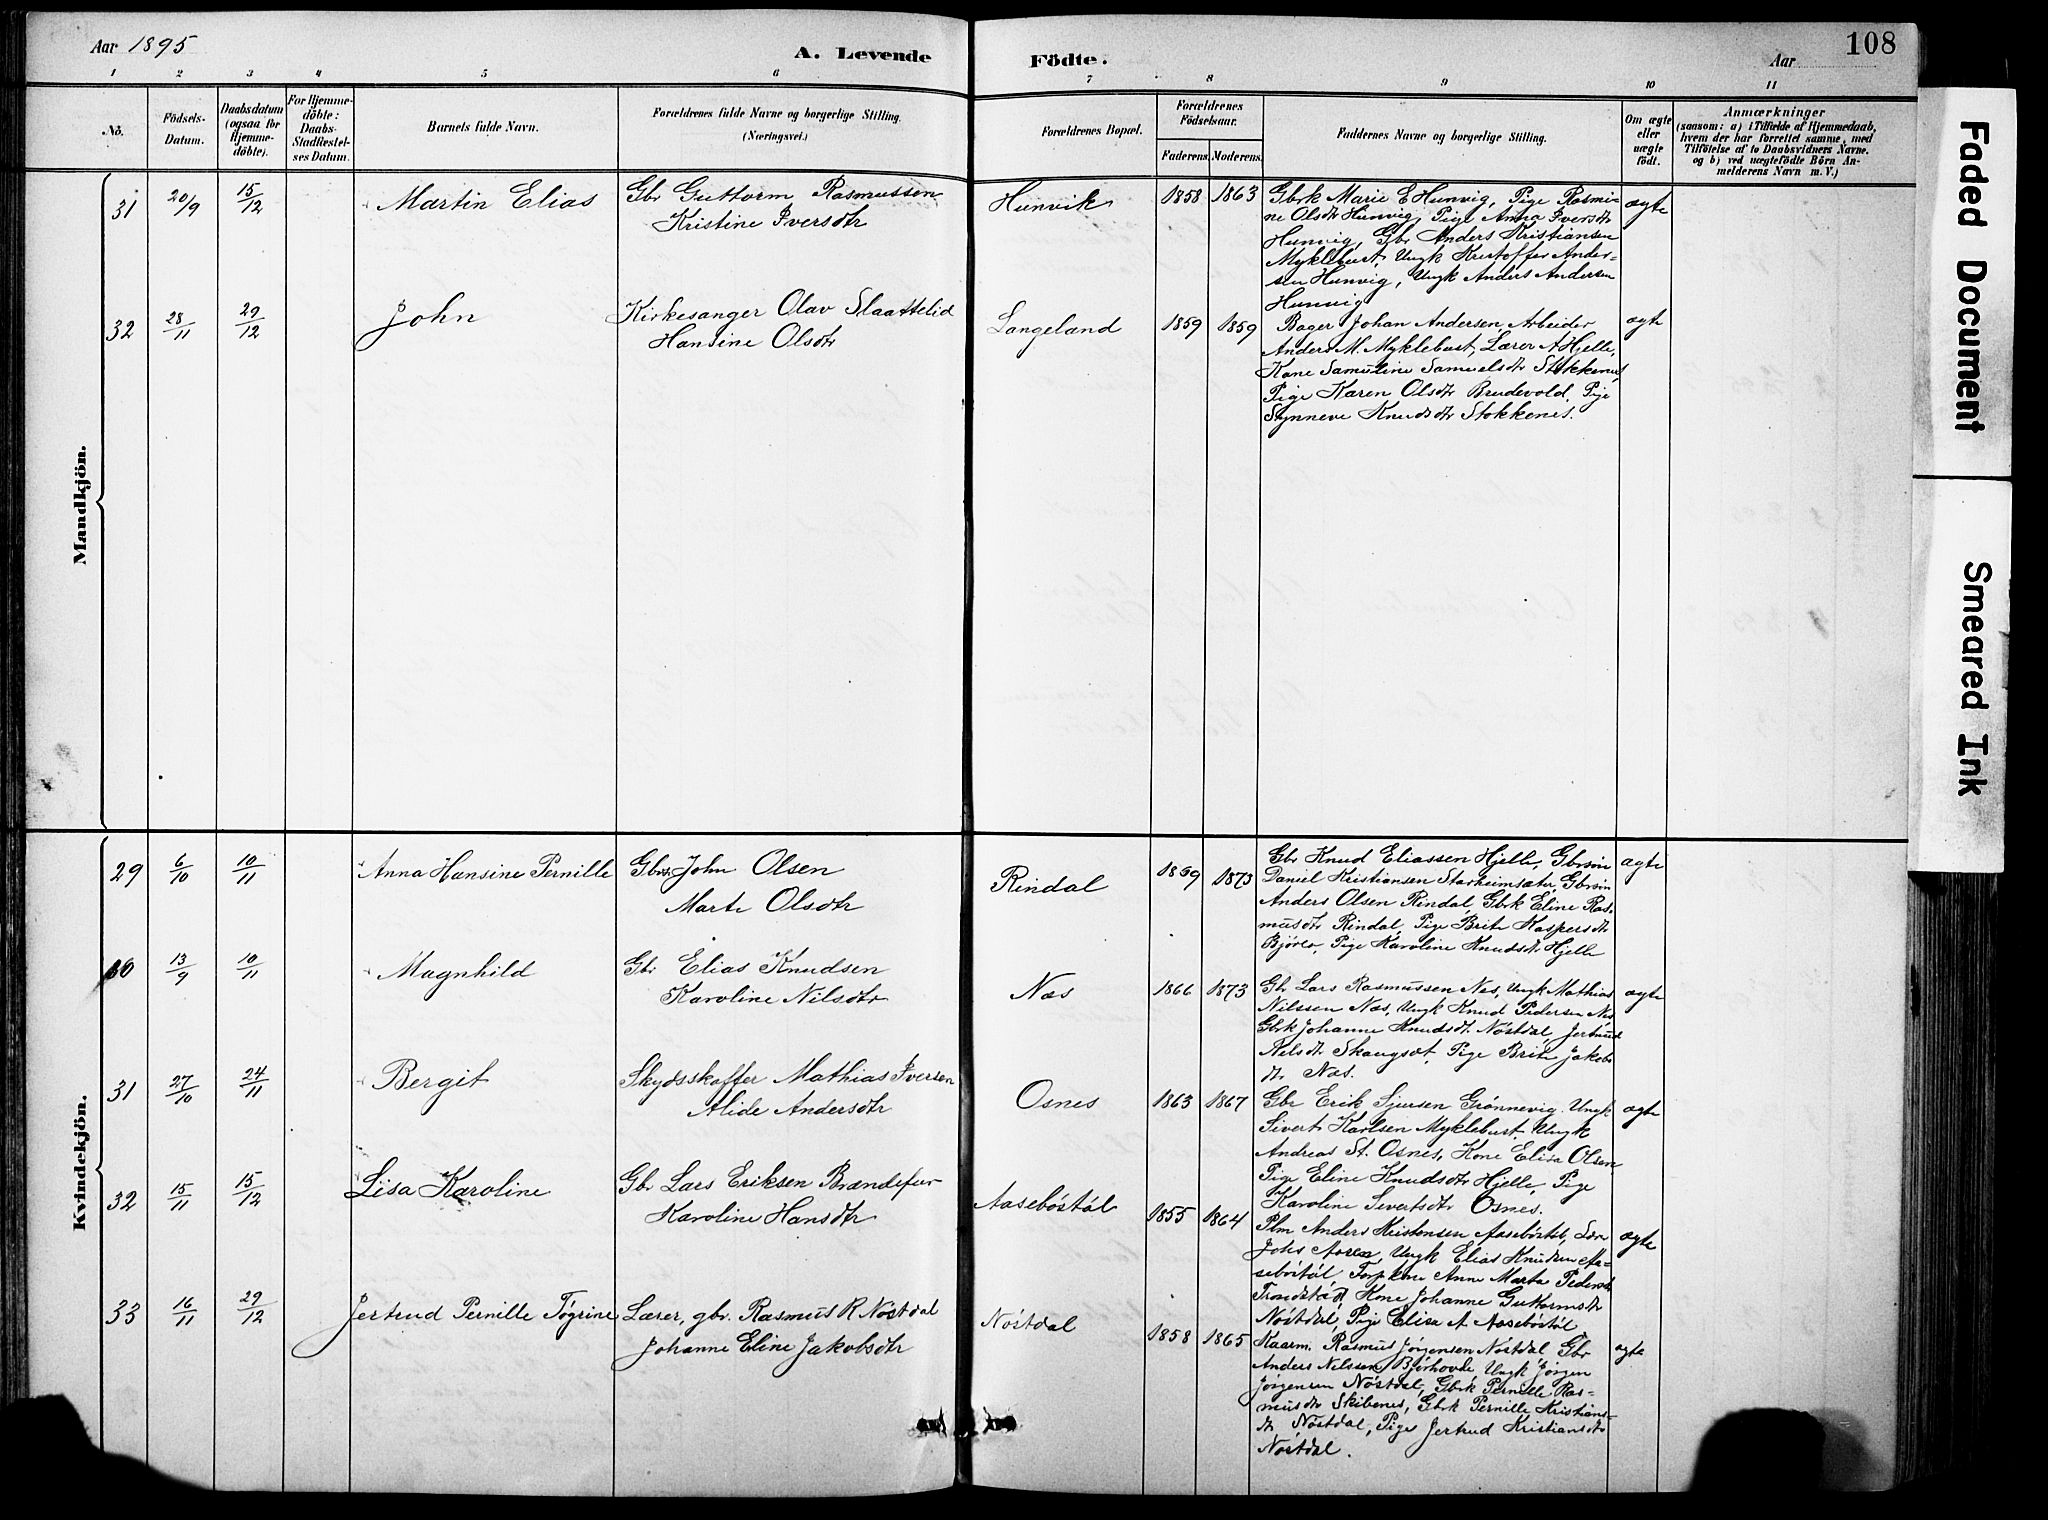 Aar 1895
A. Levende
Födte.
Aar
108
1 2 3 4 5 6 7 8 9 10 11
Nö.
Födsels-
Datum.
Daabsdatum
(ogsaa for
Hjemme-
döbte).
For Hjemme-
döbte:
Daabs-
Stadfæstel-
ses Datum.
Barnets fulde Navn.
Forældrenes fulde Navne og borgerlige Stilling.
(Næringsvei.)
Forældrenes Bopæl.
Forældrenes
Födselsaar.
Faderens. Moderens.
Faddernes Navne og borgerlige Stilling.
Om ægte
eller
uægte
födt.
Anmærkninger
(saasom: a) i Tilfælde af Hjemmedaab,
hvem der har forrettet samme, med
Tilföielse af to Daabsvidners Navne.
og b) ved uægtefödte Börn An-
melderens Navn m. V.)
Mandkjön.
31 20/9 15/12 Martin Elias
Gbr Guttorm Rasmussen
Kristine Iversdtr
Hunvik 1858 1863
Gbrk Marie E Hunvig, Pige Rasmi-
ne Olsdtr Hunvig, Pige Anna Iversdtr
Hunvig, Gbr Anders Kristiansen
Myklebust, Ungk Kristoffer Ander-
sen Hunvig, Ungk Anders Andersen
Hunvig
ægte
32 28/11 29/12 John
Kirkesanger Olav Slaattelid
Hansine Olsdtr
Langeland 1859 1859
Bager Johan Andersen, Arbeider
Anders M. Myklebust, Lærer A Hjelle,
Kone Samuline Samuelsdtr Stokkenes
Pige Karen Olsdtr Brudevold, Pige
Synneve Knudsdtr Stokkenes.
ægte
Kvindekjön.
29 6/10 10/11 Anna Hansine Pernille
Gbrs. John Olsen
Marte Olsdtr
Rindal 1869 1873
Gbr Knud Eliassen Hjelle, Gbrsön
Daniel Kristiansen Starheimsæter, Gbrsön
Anders Olsen Rindal, Gbrk Eline Ras-
musdtr Rindal, Pige Brite Kaspersdtr
Bjørlo, Pige Karoline Knudsdtr Hjelle
ægte
30 13/9 10/11 Magnhild
Gbr Elias Knudsen
Karoline Nilsdtr
Nos 1866 1873
Gbr Lars Rasmussen Nes, Ungk Mathias
Nilssen Næs, Ungk Knud Pedersen Nes
Gbrk Johanne Knudsdt. Nöstdal, Jertrud
Nilsdtr Skaugsæt, Pige Brite Jakobs
dtr Næs.
ægte
31 27/10 24/11 Bergit
Skydsskaffer Mathias Iversen
Alide Andersdtr
Osnes 1863 1867
Gbr Erik Sjursen Grönnevig. Ungk
Sivert Karlsen Myklebust, Ungk
Andreas St. Osnes, Kone Elisa Olsen
Pige Eline Knudsdtr Hjelle, Pige
Karoline Sivertsdtr Osnes.
ægte
32 15/11 15/12 Lisa Karoline
Gbr Lars Eriksen Brandefur
Karoline Hansdtr
Aaseböstöl 1855 1864
Plm Anders Kristensen Aaseböstöl,
Johs Ungk Elias Knudsen Aa-
seböstöl, Anne Marta Pedersdtr
Kone Johanne Guttormsdtr
Nöstdal, Pige Elisa A Aaseböstöl
ægte
33 16/11 29/12 Jertrud Pernille Tögrine
Lærer, gbr. Rasmus R Nöstdal
Johanne Eline Jakobsdtr
Nöstdal 1858 1865
Kaarm. Rasmus Jörgensen Nöstdal, Gbr
Anders Nilssen Björhovde, Ungk Jörgen
Jörgensen Nöstdal, Gbrk Pernille Ras-
musdtr Skibenes, Gbrk Pernille Kristians-
dtr Nöstdal, Pige Jertrud Kristiansdtr
Nöstdal.
ægte
Faded Document
Smeared Ink